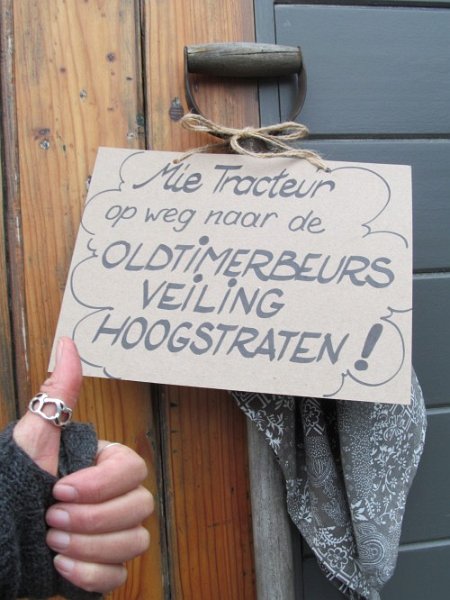 Mie Tracteur
op weg naar de
OLDTIMERBEURS
VEILING
HOOGSTRATEN!